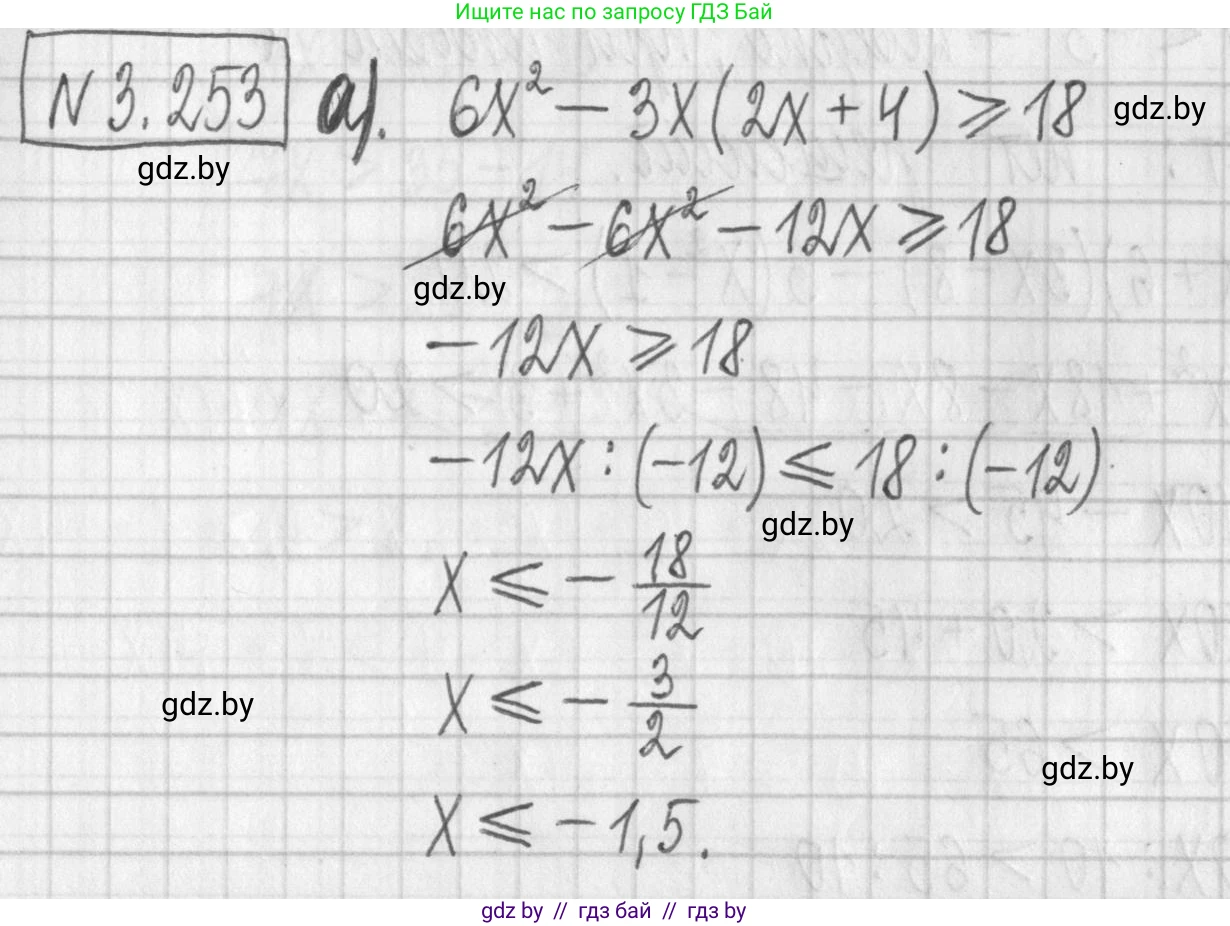 Ищите нас по запросу ГДЗ Бай
N 3.253 а). 6x² − 3x(2x + 4) ⩾ 18 gdz.by
gdz.by
6x² − 6x² − 12x ⩾ 18
gdz.by
−12x ⩾ 18
−12x : (−12) ⩽ 18 : (−12)
gdz.by
x ⩽ − 18/12
x ⩽ − 3/2
gdz.by
gdz.by
x ⩽ −1,5.
gdz by // гдз бай // гдз by